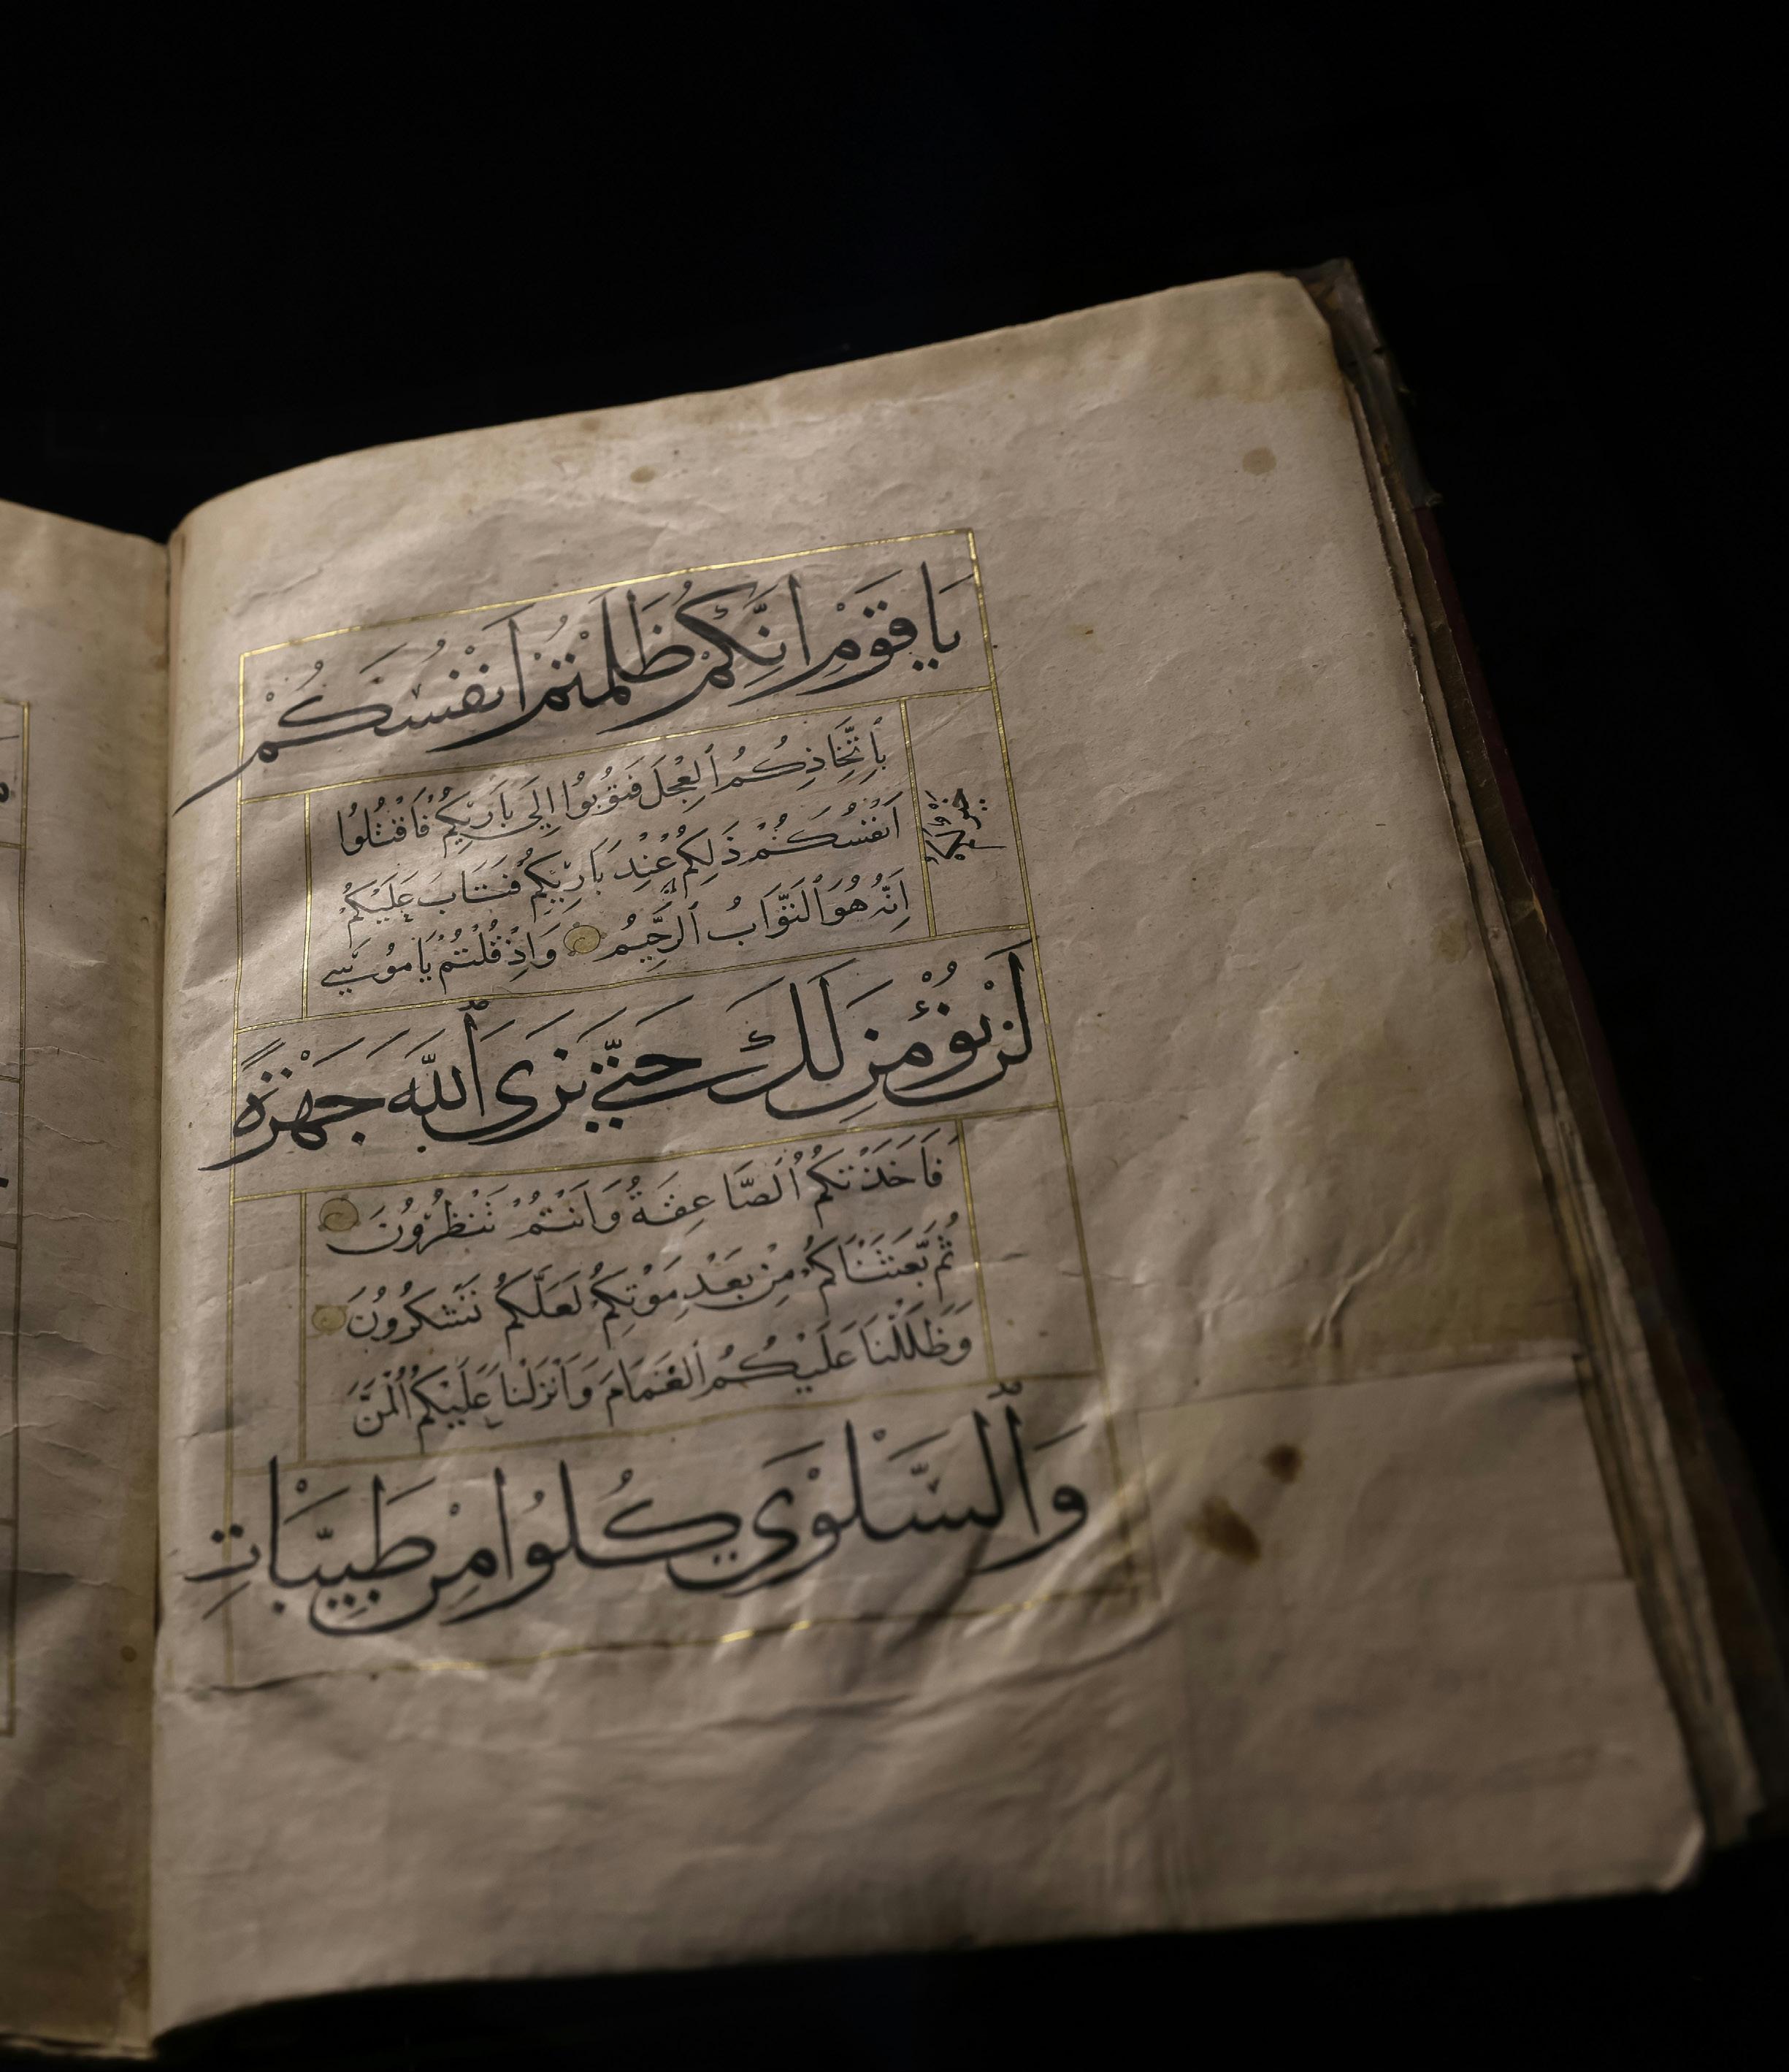 يَا قَوْمِ اِنَّكُمْ ظَلَمْتُمْ اَنْفُسَكُمْ
بِاتِّخَاذِكُمُ ٱلْعِجْلَ فَتُوبُوا اِلَى بَارِئِكُمْ فَاقْتُلُوا
اَنْفُسَكُمْ ذَلِكُمْ عِنْدَ بَارِئِكُمْ فَتَابَ عَلَيْكُمْ
اِنَّهُ هُوَ ٱلتَّوَّابُ ٱلرَّحِيمُ وَاِذْ قُلْتُمْ يَا مُوسَى
لَنْ نُؤْمِنَ لَكَ حَتَّى نَرَى ٱللَّهَ جَهْرَةً
فَاَخَذَتْكُمُ ٱلصَّاعِقَةُ وَاَنْتُمْ تَنْظُرُونَ
ثُمَّ بَعَثْنَاكُمْ مِنْ بَعْدِ مَوْتِكُمْ لَعَلَّكُمْ تَشْكُرُونَ
وَظَلَّلْنَا عَلَيْكُمُ ٱلْغَمَامَ وَاَنْزَلْنَا عَلَيْكُمُ ٱلْمَنَّ
وَٱلسَّلْوَى كُلُوا مِنْ طَيِّبَاتِ